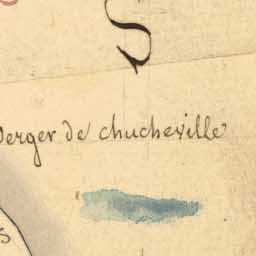 S
Verger de chucheville
s